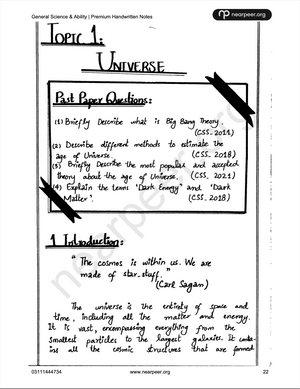 General Science & Ability | Premium Handwritten Notes
nearpeer.org
TOPIC 1:
UNIVERSE
Past Paper Questions:
(1) Briefly Describe what is Big Bang Theory.
(CSS-2011)
(2) Describe different methods to estimate the
age of Universe. (CSS-2018)
(3) Briefly Describe the most popular and accepted
theory about the age of Universe. (CSS-2021)
(4) Explain the terms 'Dark Energy' and 'Dark
Matter'. (CSS-2018)
1 Introduction:
"The cosmos is within us. We are
made of star-stuff."
(Carl Sagan)
The universe is the entirety of space and
time, including all the matter and energy.
It is vast, encompassing everything from the
smallest particles to the largest galaxies. It conta-
ins all the cosmic structures that are formed
nearpeer.org
03111444734 www.nearpeer.org 22